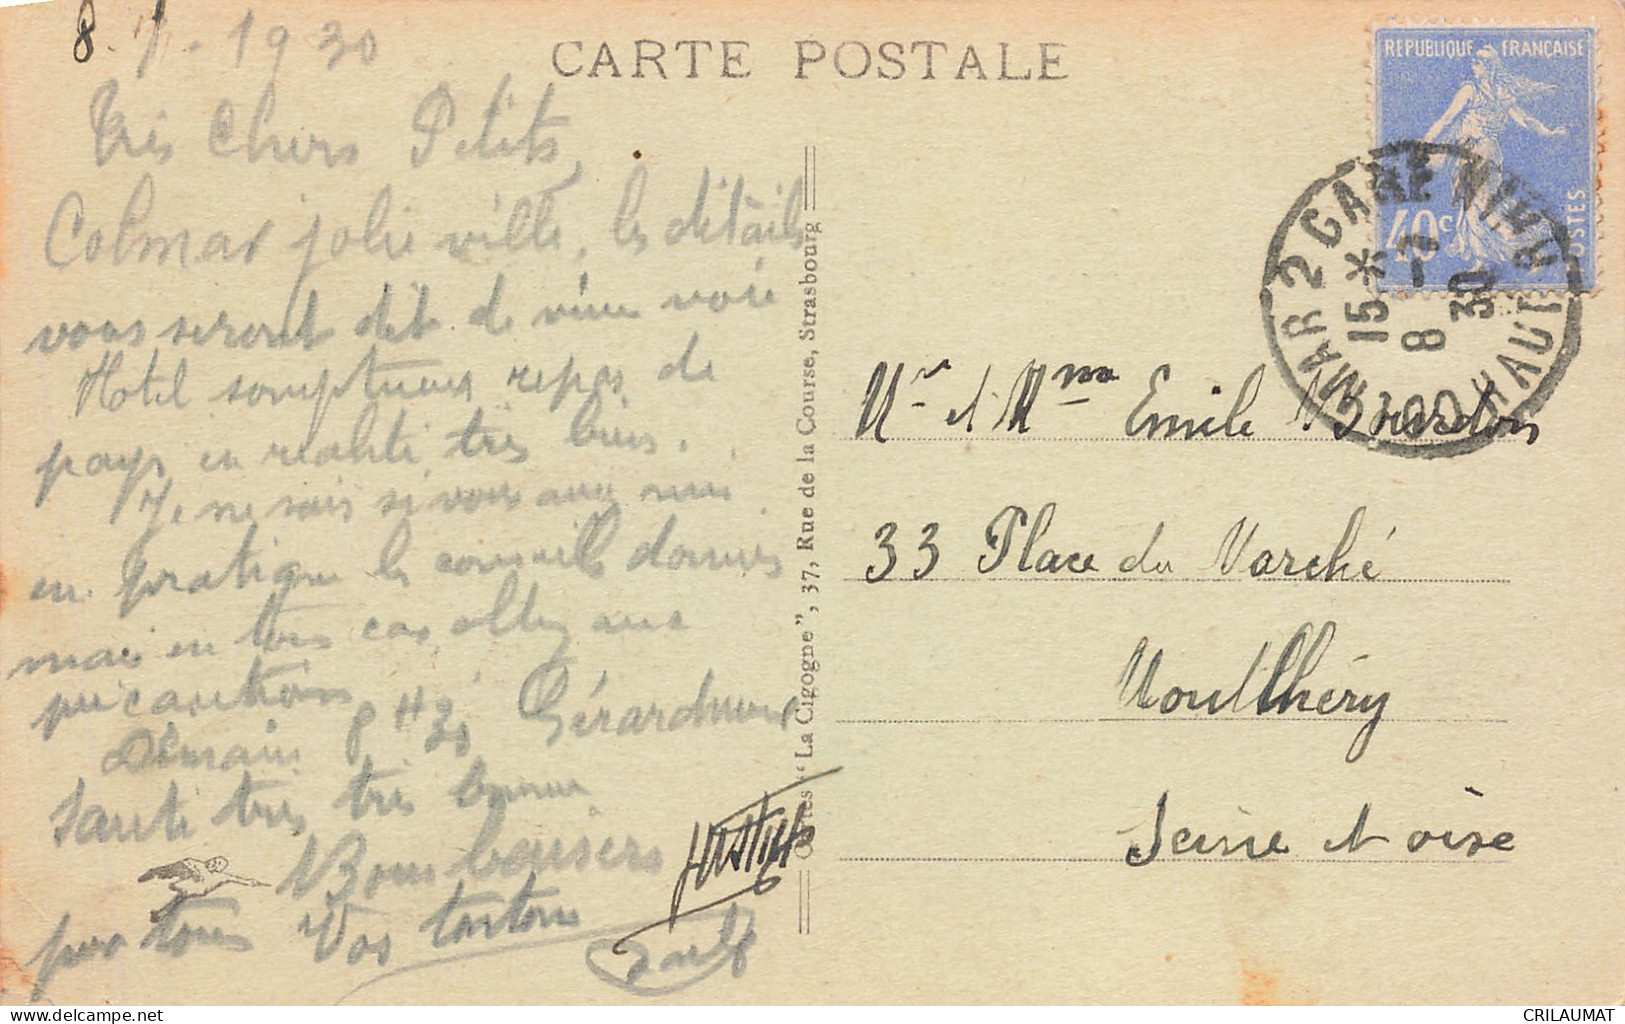 8.7.1930
CARTE POSTALE
Très Chers Petits,
Colmar jolie ville, les détails
vous seront dit de vive voie
Hotel somptueux repas de
pays en réalité très bien.
Je ne sais si vous avez mis
en pratique les conseils donnés
mais en tous cas allez aux
précautions
Demain 8H30 Gérardmer
Santé très très bonne
Bons baisers
pour tous Vos tontons
Editions "La Cigogne", 37, Rue de la Course, Strasbourg
REPUBLIQUE FRANÇAISE
40c
POSTES
COLMAR 2 GARE
HAUT RHIN
15 * 8 -7 30
Mr et Mme Emile Bourdon
33 Place du Marché
Montlhéry
Seine et Oise
delcampe.net
CRILAUMAT